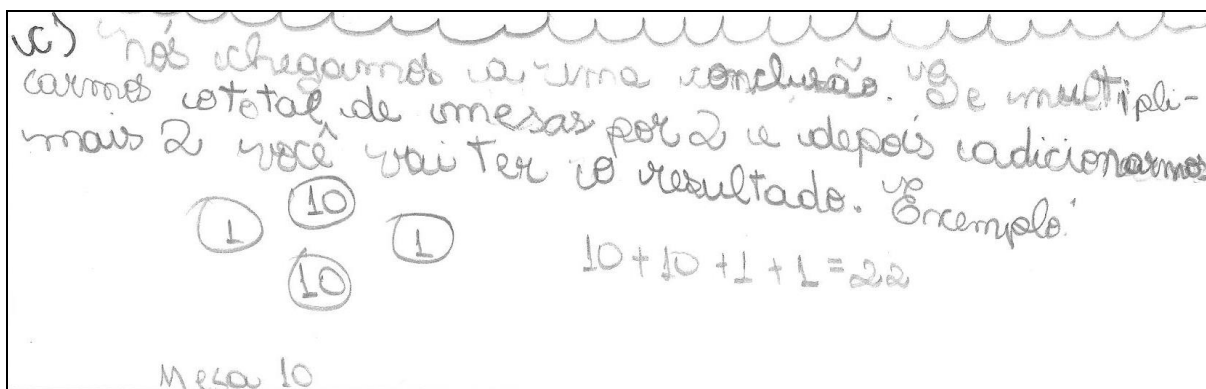 c) nós chegamos a uma conclusão. Se multipli-
carmos o total de mesas por 2 e depois adicionarmos
mais 2 você vai ter o resultado. Exemplo:
10
1 1
10
10+10+1+1=22
Mesa 10